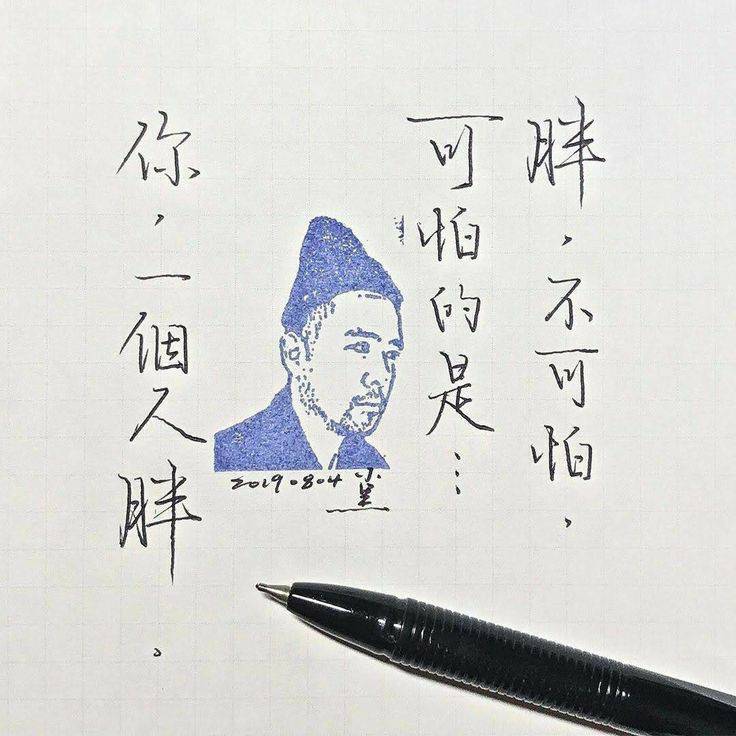 胖，不可怕，
可怕的是…
你，一個人胖。
20190804